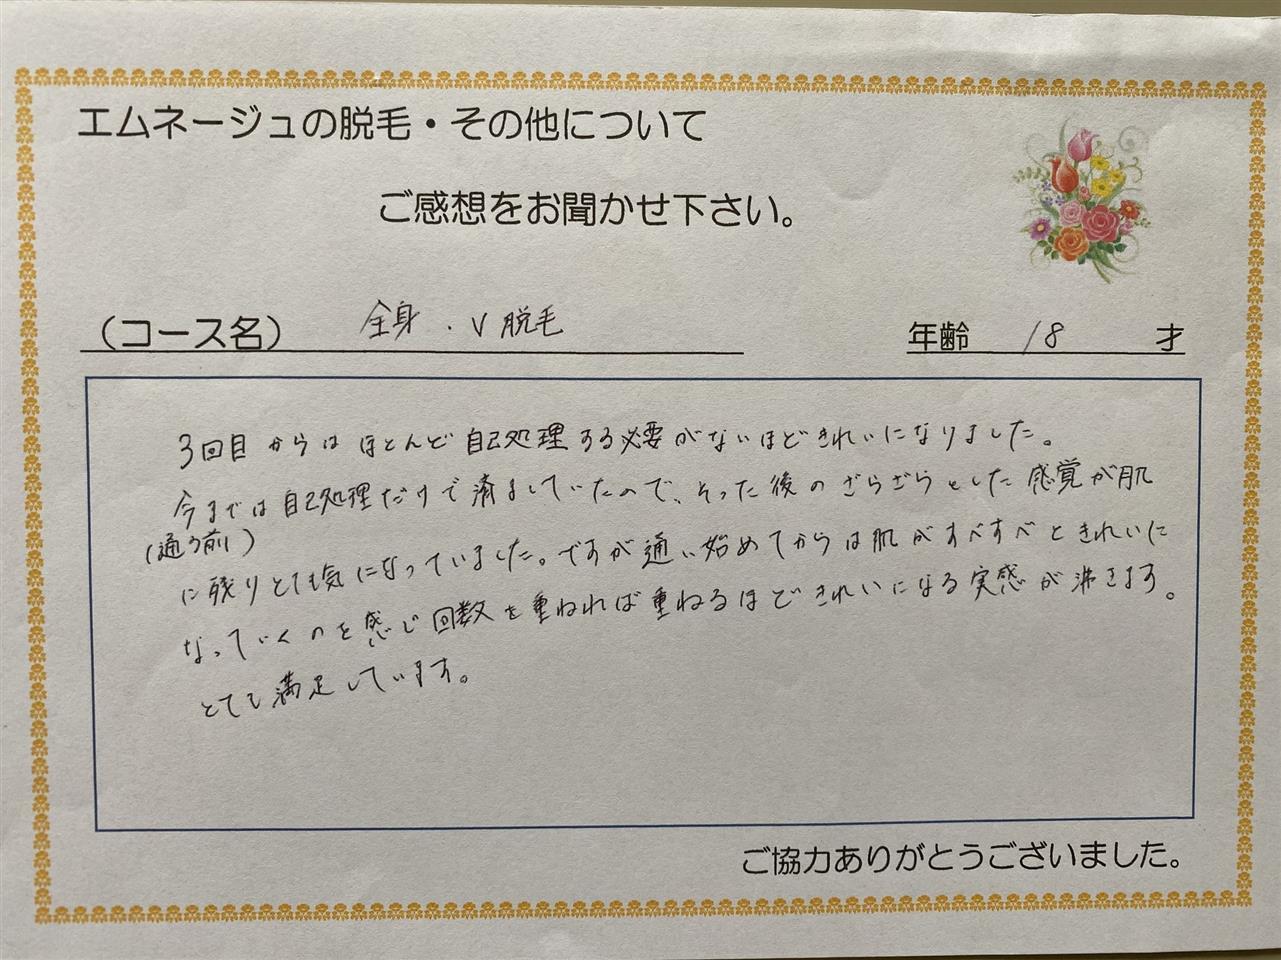 エムネージュの脱毛・その他について
ご感想をお聞かせ下さい。
(コース名) 全身 . V 脱毛
年齢 18 才
3回目からはほとんど自己処理する必要がないほどきれいになりました。
今までは自己処理だけで済ましていたので、そった後のざらざらとした感覚が肌
(通う前)
に残りとても気になっていました。ですが通い始めてからは肌がすべすべときれいに
なっていくのを感じ回数を重ねれば重ねるほどきれいになる実感が沸きます。
とても満足しています。
ご協力ありがとうございました。